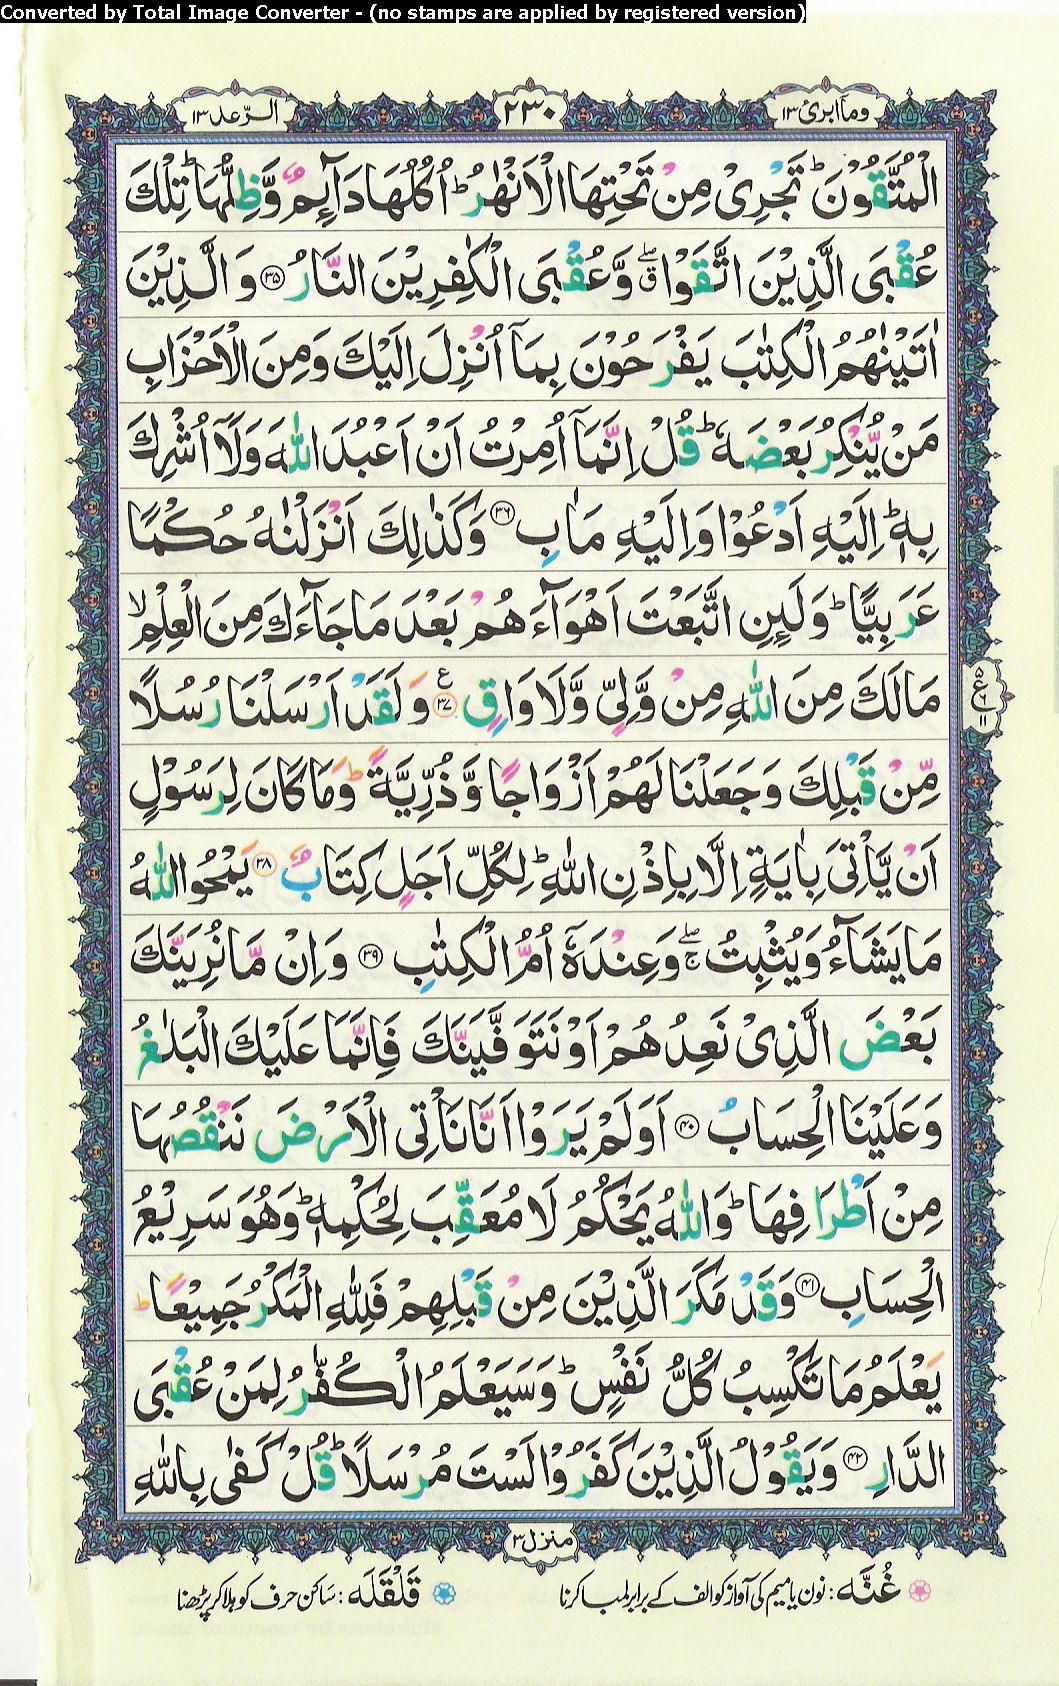 Converted by Total Image Converter - (no stamps are applied by registered version)
وما ابرئ ١٣
٢٣٠
الرّعد ١٣
الْمُتَّقُوْنَ ؕ تَجْرِیْ مِنْ تَحْتِهَا الْاَنْهٰرُ ؕ اُكُلُهَا دَآىِٕمٌ وَّظِلُّهَا ؕ تِلْكَ
عُقْبَی الَّذِیْنَ اتَّقَوْا ۖۗ وَّعُقْبَی الْكٰفِرِیْنَ النَّارُ ﴿۳۵﴾ وَالَّذِیْنَ
اٰتَیْنٰهُمُ الْكِتٰبَ یَفْرَحُوْنَ بِمَاۤ اُنْزِلَ اِلَیْكَ وَمِنَ الْاَحْزَابِ
مَنْ یُّنْكِرُ بَعْضَهٗ ؕ قُلْ اِنَّمَاۤ اُمِرْتُ اَنْ اَعْبُدَ اللّٰهَ وَلَاۤ اُشْرِكَ
بِهٖ ؕ اِلَیْهِ اَدْعُوْا وَاِلَیْهِ مَاٰبِ ﴿۳۶﴾ وَكَذٰلِكَ اَنْزَلْنٰهُ حُكْمًا
عَرَبِیًّا ؕ وَلَىِٕنِ اتَّبَعْتَ اَهْوَآءَهُمْ بَعْدَ مَا جَآءَكَ مِنَ الْعِلْمِ ۙ
مَا لَكَ مِنَ اللّٰهِ مِنْ وَّلِیٍّ وَّلَا وَاقٍ ﴿۳۷﴾ ع وَلَقَدْ اَرْسَلْنَا رُسُلًا
مِّنْ قَبْلِكَ وَجَعَلْنَا لَهُمْ اَزْوَاجًا وَّذُرِّیَّةً ؕ وَمَا كَانَ لِرَسُوْلٍ
اَنْ یَّاْتِیَ بِاٰیَةٍ اِلَّا بِاِذْنِ اللّٰهِ ؕ لِكُلِّ اَجَلٍ كِتَابٌ ﴿۳۸﴾ یَمْحُوا اللّٰهُ
مَا یَشَآءُ وَیُثْبِتُ ۖۚ وَعِنْدَهٗۤ اُمُّ الْكِتٰبِ ﴿۳۹﴾ وَاِنْ مَّا نُرِیَنَّكَ
بَعْضَ الَّذِیْ نَعِدُهُمْ اَوْ نَتَوَفَّیَنَّكَ فَاِنَّمَا عَلَیْكَ الْبَلٰغُ
وَعَلَیْنَا الْحِسَابُ ﴿۴۰﴾ اَوَلَمْ یَرَوْا اَنَّا نَاْتِی الْاَرْضَ نَنْقُصُهَا
مِنْ اَطْرَافِهَا ؕ وَاللّٰهُ یَحْكُمُ لَا مُعَقِّبَ لِحُكْمِهٖ ؕ وَهُوَ سَرِیْعُ
الْحِسَابِ ﴿۴۱﴾ وَقَدْ مَكَرَ الَّذِیْنَ مِنْ قَبْلِهِمْ فَلِلّٰهِ الْمَكْرُ جَمِیْعًا ؕ
یَعْلَمُ مَا تَكْسِبُ كُلُّ نَفْسٍ ؕ وَسَیَعْلَمُ الْكُفّٰرُ لِمَنْ عُقْبَی
الدَّارِ ﴿۴۲﴾ وَیَقُوْلُ الَّذِیْنَ كَفَرُوْا لَسْتَ مُرْسَلًا ؕ قُلْ كَفٰی بِاللّٰهِ
منزل ۳
غُنَّه: نون یا میم کی آواز کو الف کے برابر لمبا کرنا
قَلْقَلَه: ساکن حرف کو ہلا کر پڑھنا